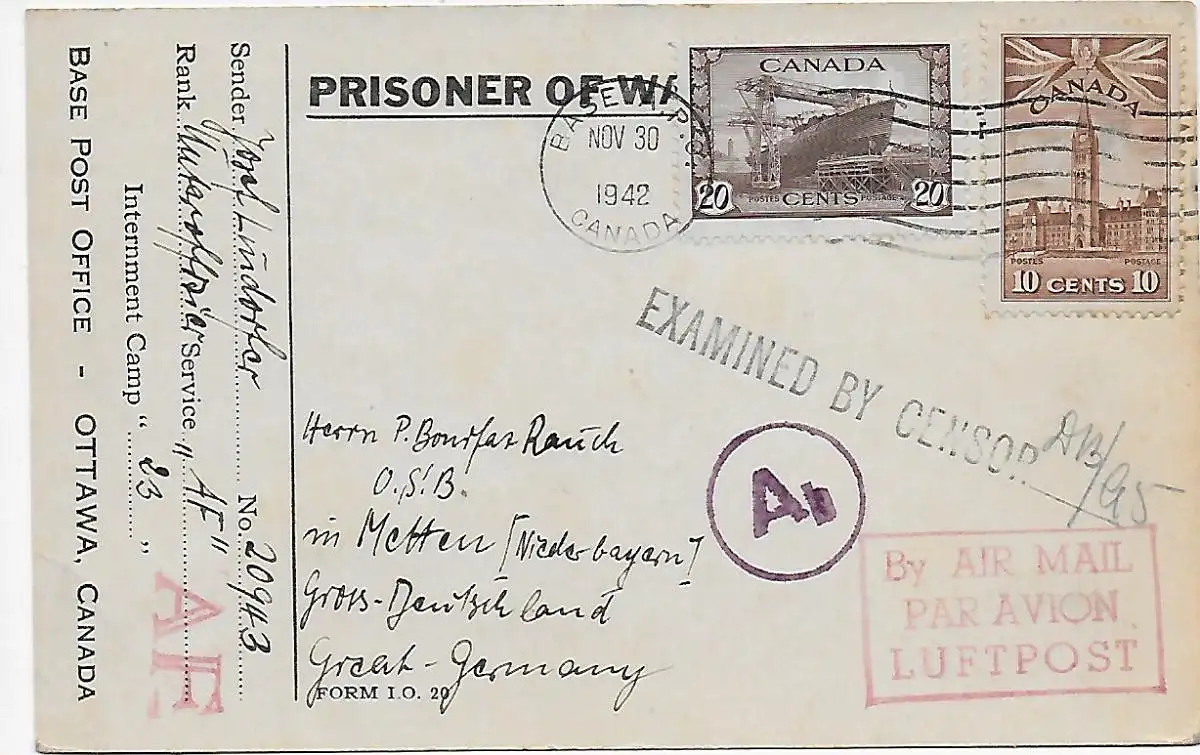 PRISONER OF WA
BASE A.P.O.
NOV 30
1942
CANADA
CANADA
20 POSTES CENTS POSTAGE 20
CANADA
POSTES POSTAGE
10 CENTS 10
EXAMINED BY CENSOR
By AIR MAIL
PAR AVION
LUFTPOST
Herrn P. Bonifaz Rauch
O.S.B.
in Metten (Niederbayern)
Gross-Deutschland
Great-Germany
FORM I.O. 20
Sender Josef Lindorfer No. 20943
Rank Unteroffizier Service "AF"
Internment Camp " 23 "
BASE POST OFFICE - OTTAWA, CANADA
AF